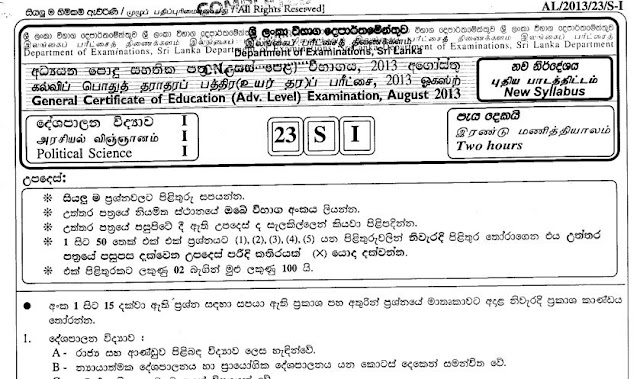 සියලු ම හිමිකම් ඇවිරිණි / முழுப் பதிப்புரிமையுடையது / All Rights Reserved]
AL/2013/23/S-I
ශ්‍රී ලංකා විභාග දෙපාර්තමේන්තුව
இலங்கைப் பரீட்சைத் திணைக்களம்
Department of Examinations, Sri Lanka
අධ්‍යයන පොදු සහතික පත්‍ර (උසස් පෙළ) විභාගය, 2013 අගෝස්තු
கல்விப் பொதுத் தராதரப் பத்திர(உயர் தர)ப் பரீட்சை, 2013 ஓகஸ்ற்
General Certificate of Education (Adv. Level) Examination, August 2013
නව නිර්දේශය
புதிய பாடத்திட்டம்
New Syllabus
දේශපාලන විද්‍යාව I
அரசியல் விஞ்ஞானம் I
Political Science I
23 S I
පැය දෙකයි
இரண்டு மணித்தியாலம்
Two hours
උපදෙස්:
※ සියලු ම ප්‍රශ්නවලට පිළිතුරු සපයන්න.
※ උත්තර පත්‍රයේ නියමිත ස්ථානයේ ඔබේ විභාග අංකය ලියන්න.
※ උත්තර පත්‍රයේ පසුපිටේ දී ඇති උපදෙස් ද සැලකිල්ලෙන් කියවා පිළිපදින්න.
※ 1 සිට 50 තෙක් එක් එක් ප්‍රශ්නයට (1), (2), (3), (4), (5) යන පිළිතුරුවලින් නිවැරදි පිළිතුර තෝරාගෙන එය උත්තර
පත්‍රයේ පසුපස දැක්වෙන උපදෙස් පරිදි කතිරයක් (X) යොදා දක්වන්න.
※ එක් පිළිතුරකට ලකුණු 02 බැගින් මුළු ලකුණු 100 යි.
● අංක 1 සිට 15 දක්වා ඇති ප්‍රශ්න සඳහා සපයා ඇති ප්‍රකාශ පහ අතුරින් ප්‍රශ්නයේ මාතෘකාවට අදාළ නිවැරදි ප්‍රකාශ කාණ්ඩය
තෝරන්න.
1. දේශපාලන විද්‍යාව :
A - රාජ්‍ය සහ ආණ්ඩුව පිළිබඳ විද්‍යාව ලෙස හැඳින්වේ.
B - න්‍යායාත්මක දේශපාලනය හා ප්‍රායෝගික දේශපාලනය යන කොටස් දෙකෙන් සමන්විත වේ.